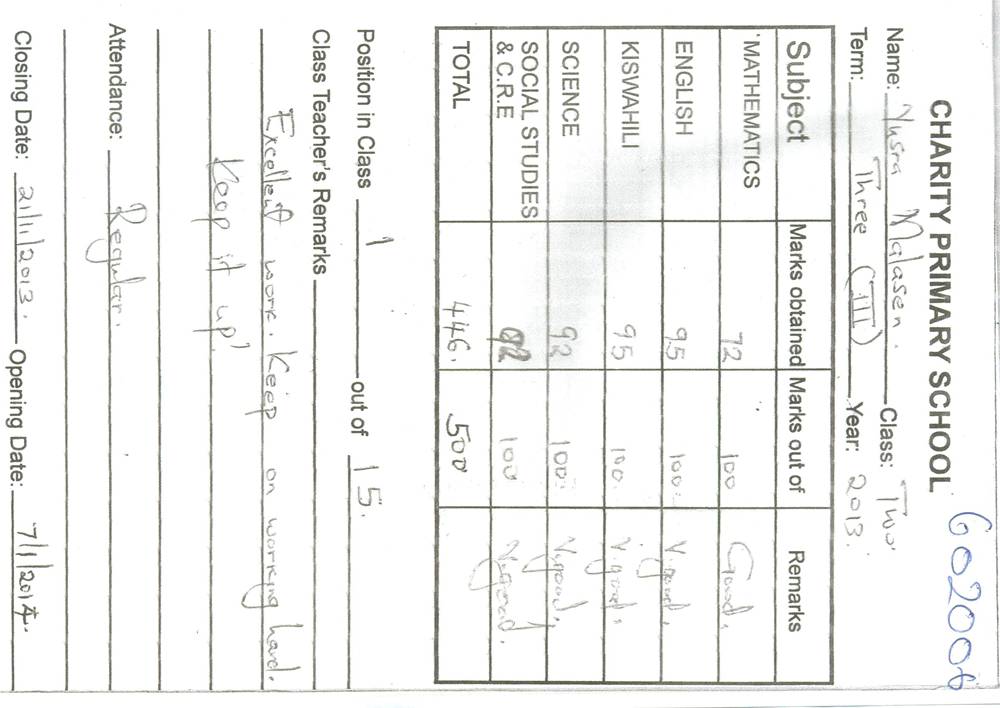 6020006
CHARITY PRIMARY SCHOOL
Name: Yusra Malasen. Class: Two
Term: Three (III) Year: 2013.
Subject Marks obtained Marks out of Remarks
MATHEMATICS 72 100 Good.
ENGLISH 95 100 V.good.
KISWAHILI 95 100. V.good.
SCIENCE 92 100. V.good.
SOCIAL STUDIES & C.R.E 92 100 V.good.
TOTAL 446. 500
Position in Class 1 out of 15.
Class Teacher's Remarks
Excellent work. Keep on working hard.
Keep it up!
Attendance: Regular.
Closing Date: 21/11/2013. Opening Date: 7/1/2014.